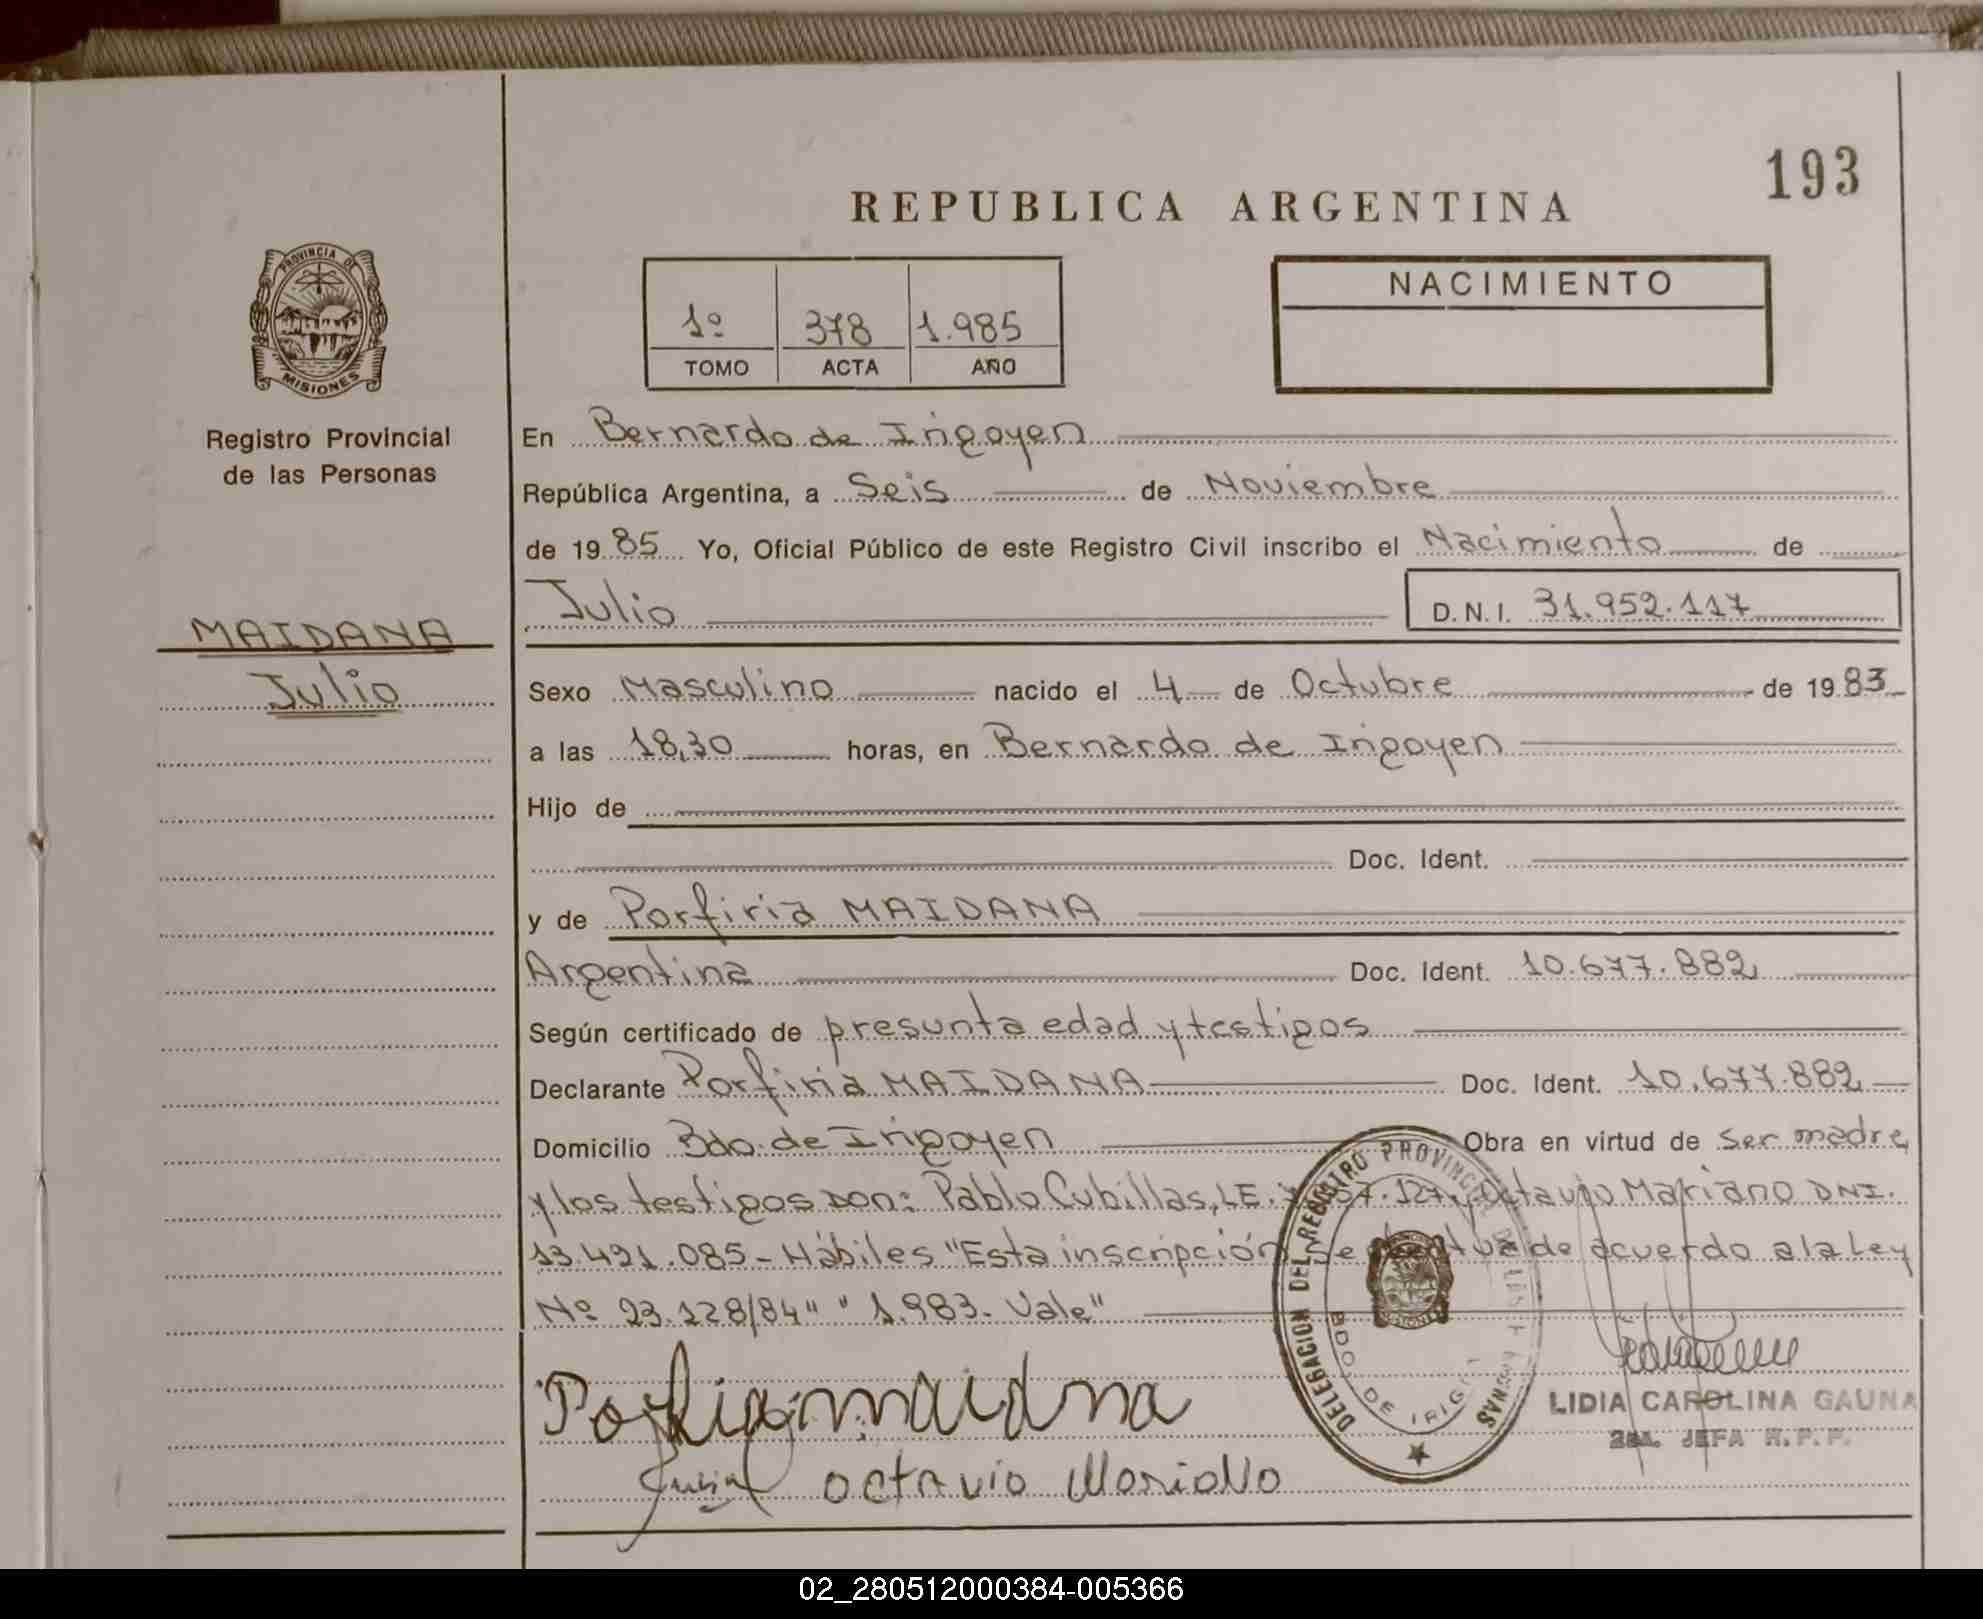 193
REPUBLICA ARGENTINA
PROVINCIA DE
MISIONES
Registro Provincial
de las Personas
1º 378 1.985
TOMO ACTA AÑO
NACIMIENTO
En Bernardo de Irigoyen
República Argentina, a Seis de Noviembre
de 19 85 Yo, Oficial Público de este Registro Civil inscribo el Nacimiento de
Julio D.N.I. 31.952.117
MAIDANA
Julio
Sexo Masculino nacido el 4 de Octubre de 19 83
a las 18,30 horas, en Bernardo de Irigoyen
Hijo de
Doc. Ident.
y de Porfiria MAIDANA
Argentina Doc. Ident. 10.677.882
Según certificado de presunta edad y testigos
Declarante Porfiria MAIDANA Doc. Ident. 10.677.882
Domicilio Bdo. de Irigoyen Obra en virtud de Ser madre
y los testigos Don: Pablo Cubillas, LE. Octavio Mariano DNI.
13.421.085 - Hábiles "Esta inscripción se efectua de acuerdo a la Ley
Nº 23.128/84" "1.983. Vale"
DELEGACION DEL REGISTRO PROVINCIAL DE LAS PERSONAS
BDO. DE IRIG.
Porfiria maidana
octavio Mariano
LIDIA CAROLINA GAUNA
2da. JEFA R.P.P.
02_280512000384-005366